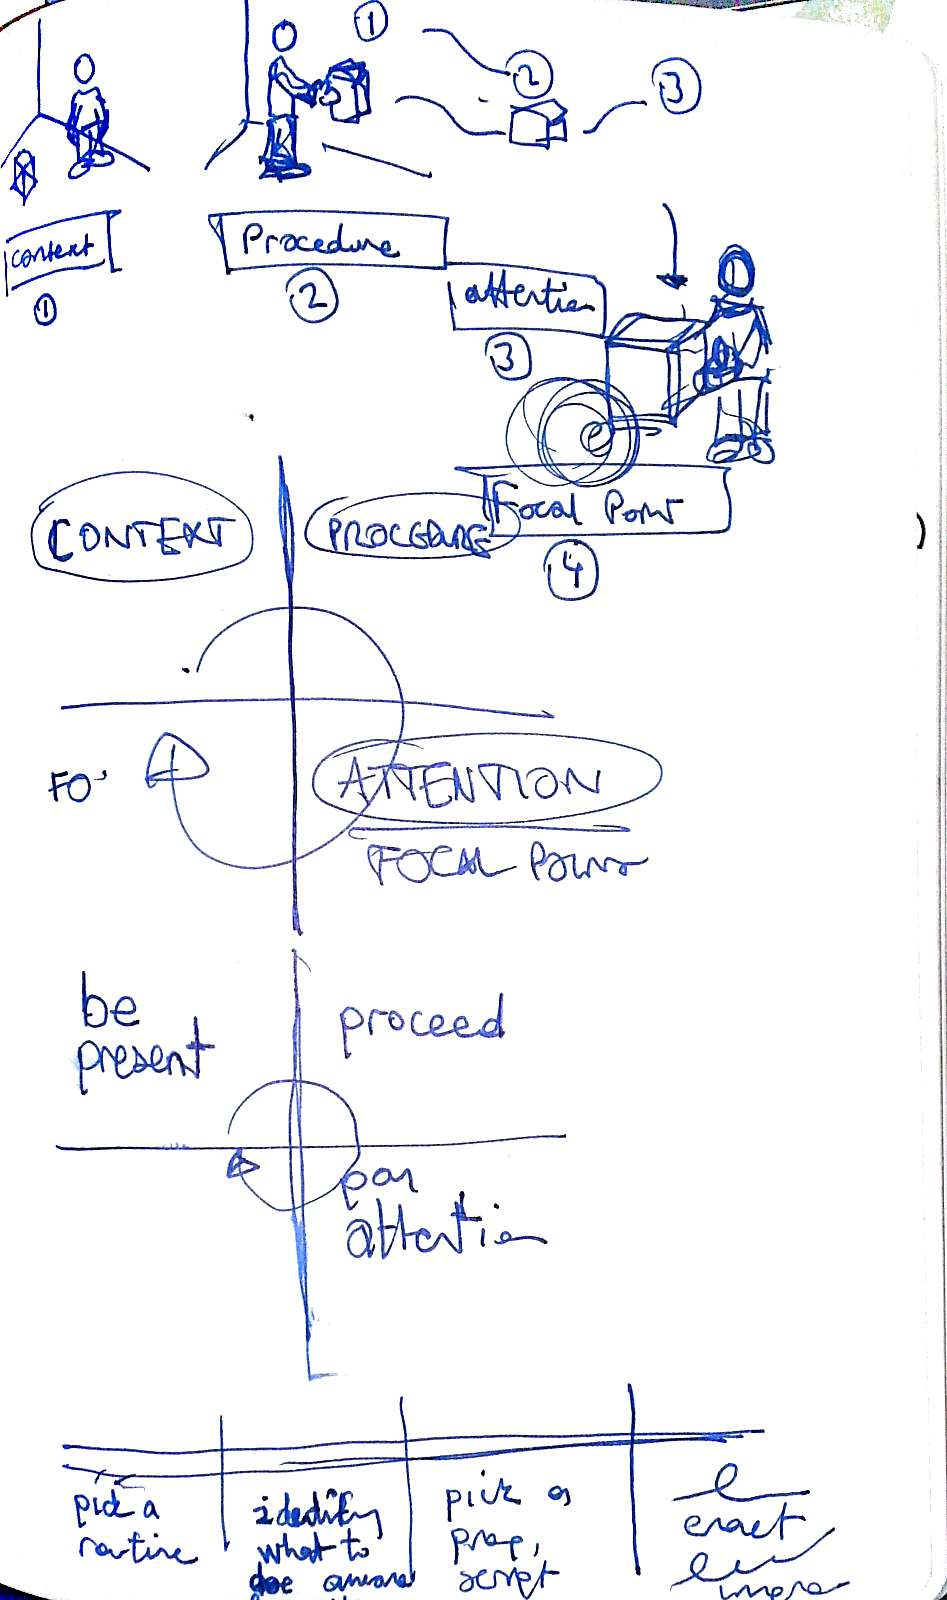 1
2
3
context
1
Procedure
2
attention
3
Focal Point
4
CONTEXT
PROCEDURE
FO
ATTENTION
FOCAL POINT
be
present
proceed
pay
attention
pick a
routine
identify
what to
pick a
prop,
script
enact